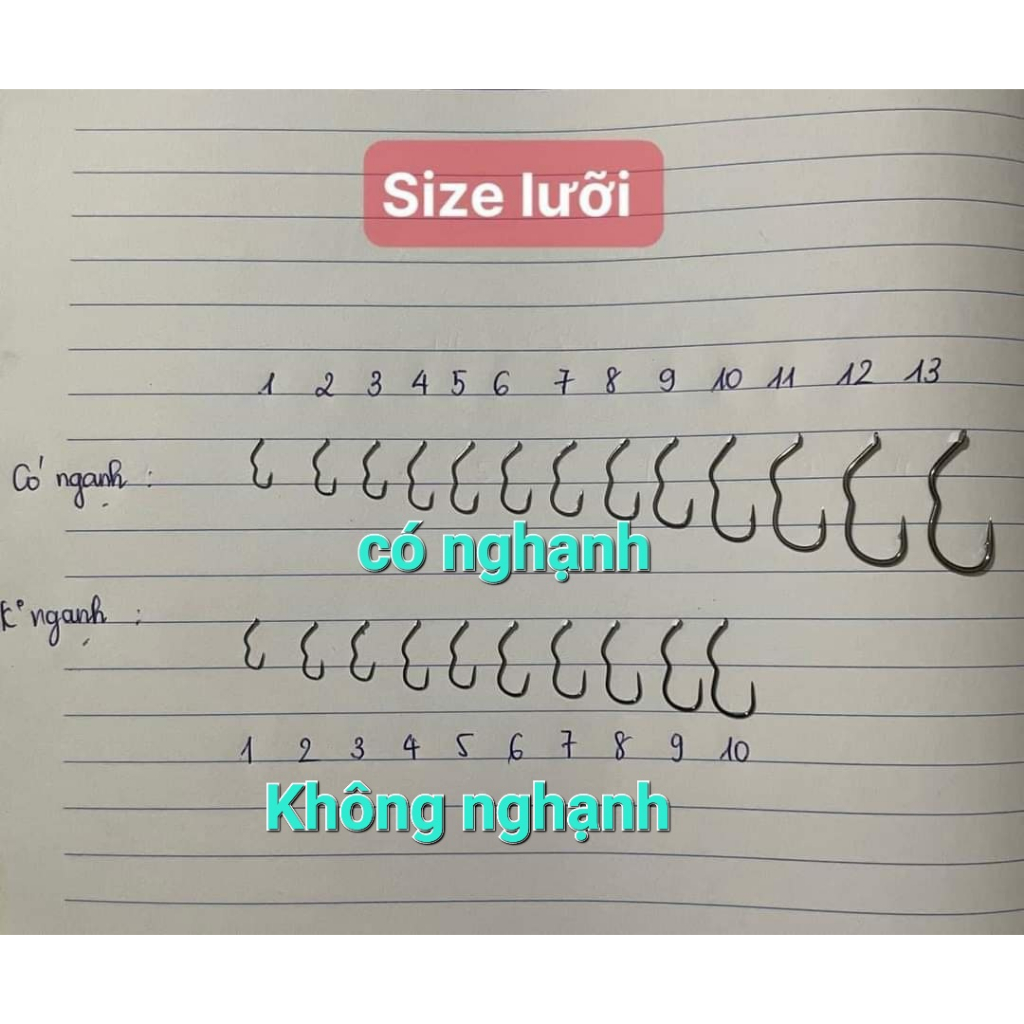 Size lưỡi
1 2 3 4 5 6 7 8 9 10 11 12 13
Có ngạnh :
có nghạnh
K° ngạnh :
1 2 3 4 5 6 7 8 9 10
Không nghạnh